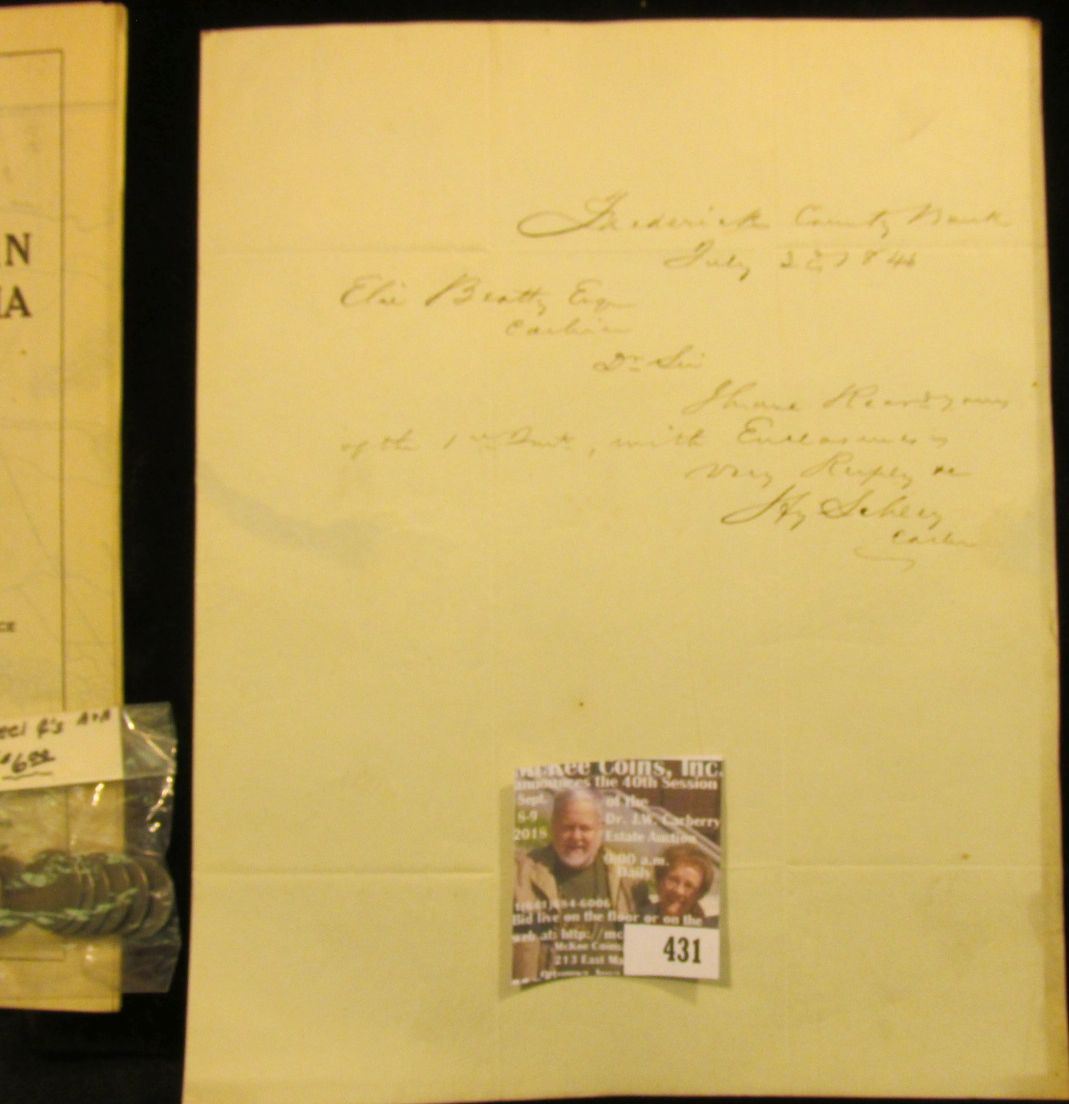 N
IA
CE
eel ¢'s A+A
$6.00
Frederick County Bank
July 1846
Elie Beatty Esqr
Cashier
Dr Sir
I have Recd yours
of the 1st Inst., with Enclosures
Very Respy
Hy Schley
Cashr
McKee Coins, Inc.
announces the 40th Session
Sept. of the
8-9 Dr. J.W. Carberry
2018 Estate Auction
a.m.
Daily
Bid live on the floor or on the
web at: http://mc
McKee Coins
213 East Ma
431